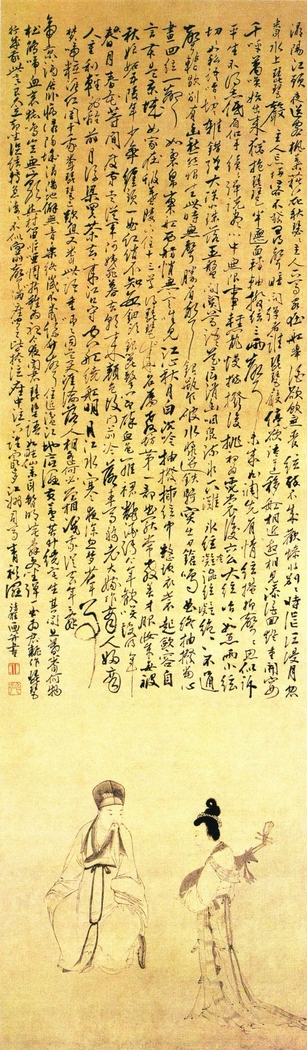 潯陽江頭夜送客楓葉荻花秋瑟瑟主人下馬客在船舉酒欲飲無管絃醉不成歡慘將別別時茫茫江浸月忽
聞水上琵琶聲主人忘歸客不發尋聲暗問彈者誰琵琶聲停欲語遲移船相近邀相見添酒回燈重開宴
千呼萬喚始出來猶抱琵琶半遮面轉軸撥絃三兩聲未成曲調先有情絃絃掩抑聲聲思似訴
平生不得志低眉信手續續彈說盡心中無限事輕攏慢撚撥復挑初為霓裳後六么大絃嘈嘈如急雨小絃
切切如私語嘈嘈切切錯雜彈大珠小珠落玉盤間關鶯語花底滑幽咽泉流水下灘水泉冷澀絃凝絕凝絕不通
聲漸歇別有幽愁暗恨生此時無聲勝有聲銀瓶乍破水漿迸鐵騎突出刀鎗鳴曲終抽撥當心
畫四絃一聲如裂帛東船西舫悄無言唯見江心秋月白沉吟抽撥插絃中整頓衣裳起斂容自
言本是京城女家在蝦蟆陵下住十三學得琵琶成名屬教坊第一部曲罷常教善才服妝成每被
秋娘妒五陵年少爭纏頭一曲紅綃不知數鈿頭銀篦擊節碎血色羅裙翻酒污今年歡笑復明年
秋月春風等閒度弟走從軍阿姨死暮去朝來顏色故門前冷落車馬稀老大嫁作商人婦商
人重利輕離別前月浮梁買茶去去來江口守空船繞船明月江水寒夜深忽夢少年事
夢啼粧淚紅闌干我聞琵琶已歎息又聞此語重唧唧同是天涯淪落人相逢何必曾相識我從去年辭
帝京謫居臥病潯陽城潯陽地僻無音樂終歲不聞絲竹聲住近湓江地低濕黃蘆苦竹繞宅生其間旦暮聞何物
杜鵑啼血猿哀鳴春江花朝秋月夜往往取酒還獨傾豈無山歌與村笛嘔啞嘲哳難為聽今夜聞君琵琶語如聽仙樂耳暫明莫辭更坐彈一曲為君翻作琵琶
行感我此言良久立却坐促絃絃轉急淒淒不似向前聲滿座重聞皆掩泣座中泣下誰最多江州司馬青衫濕